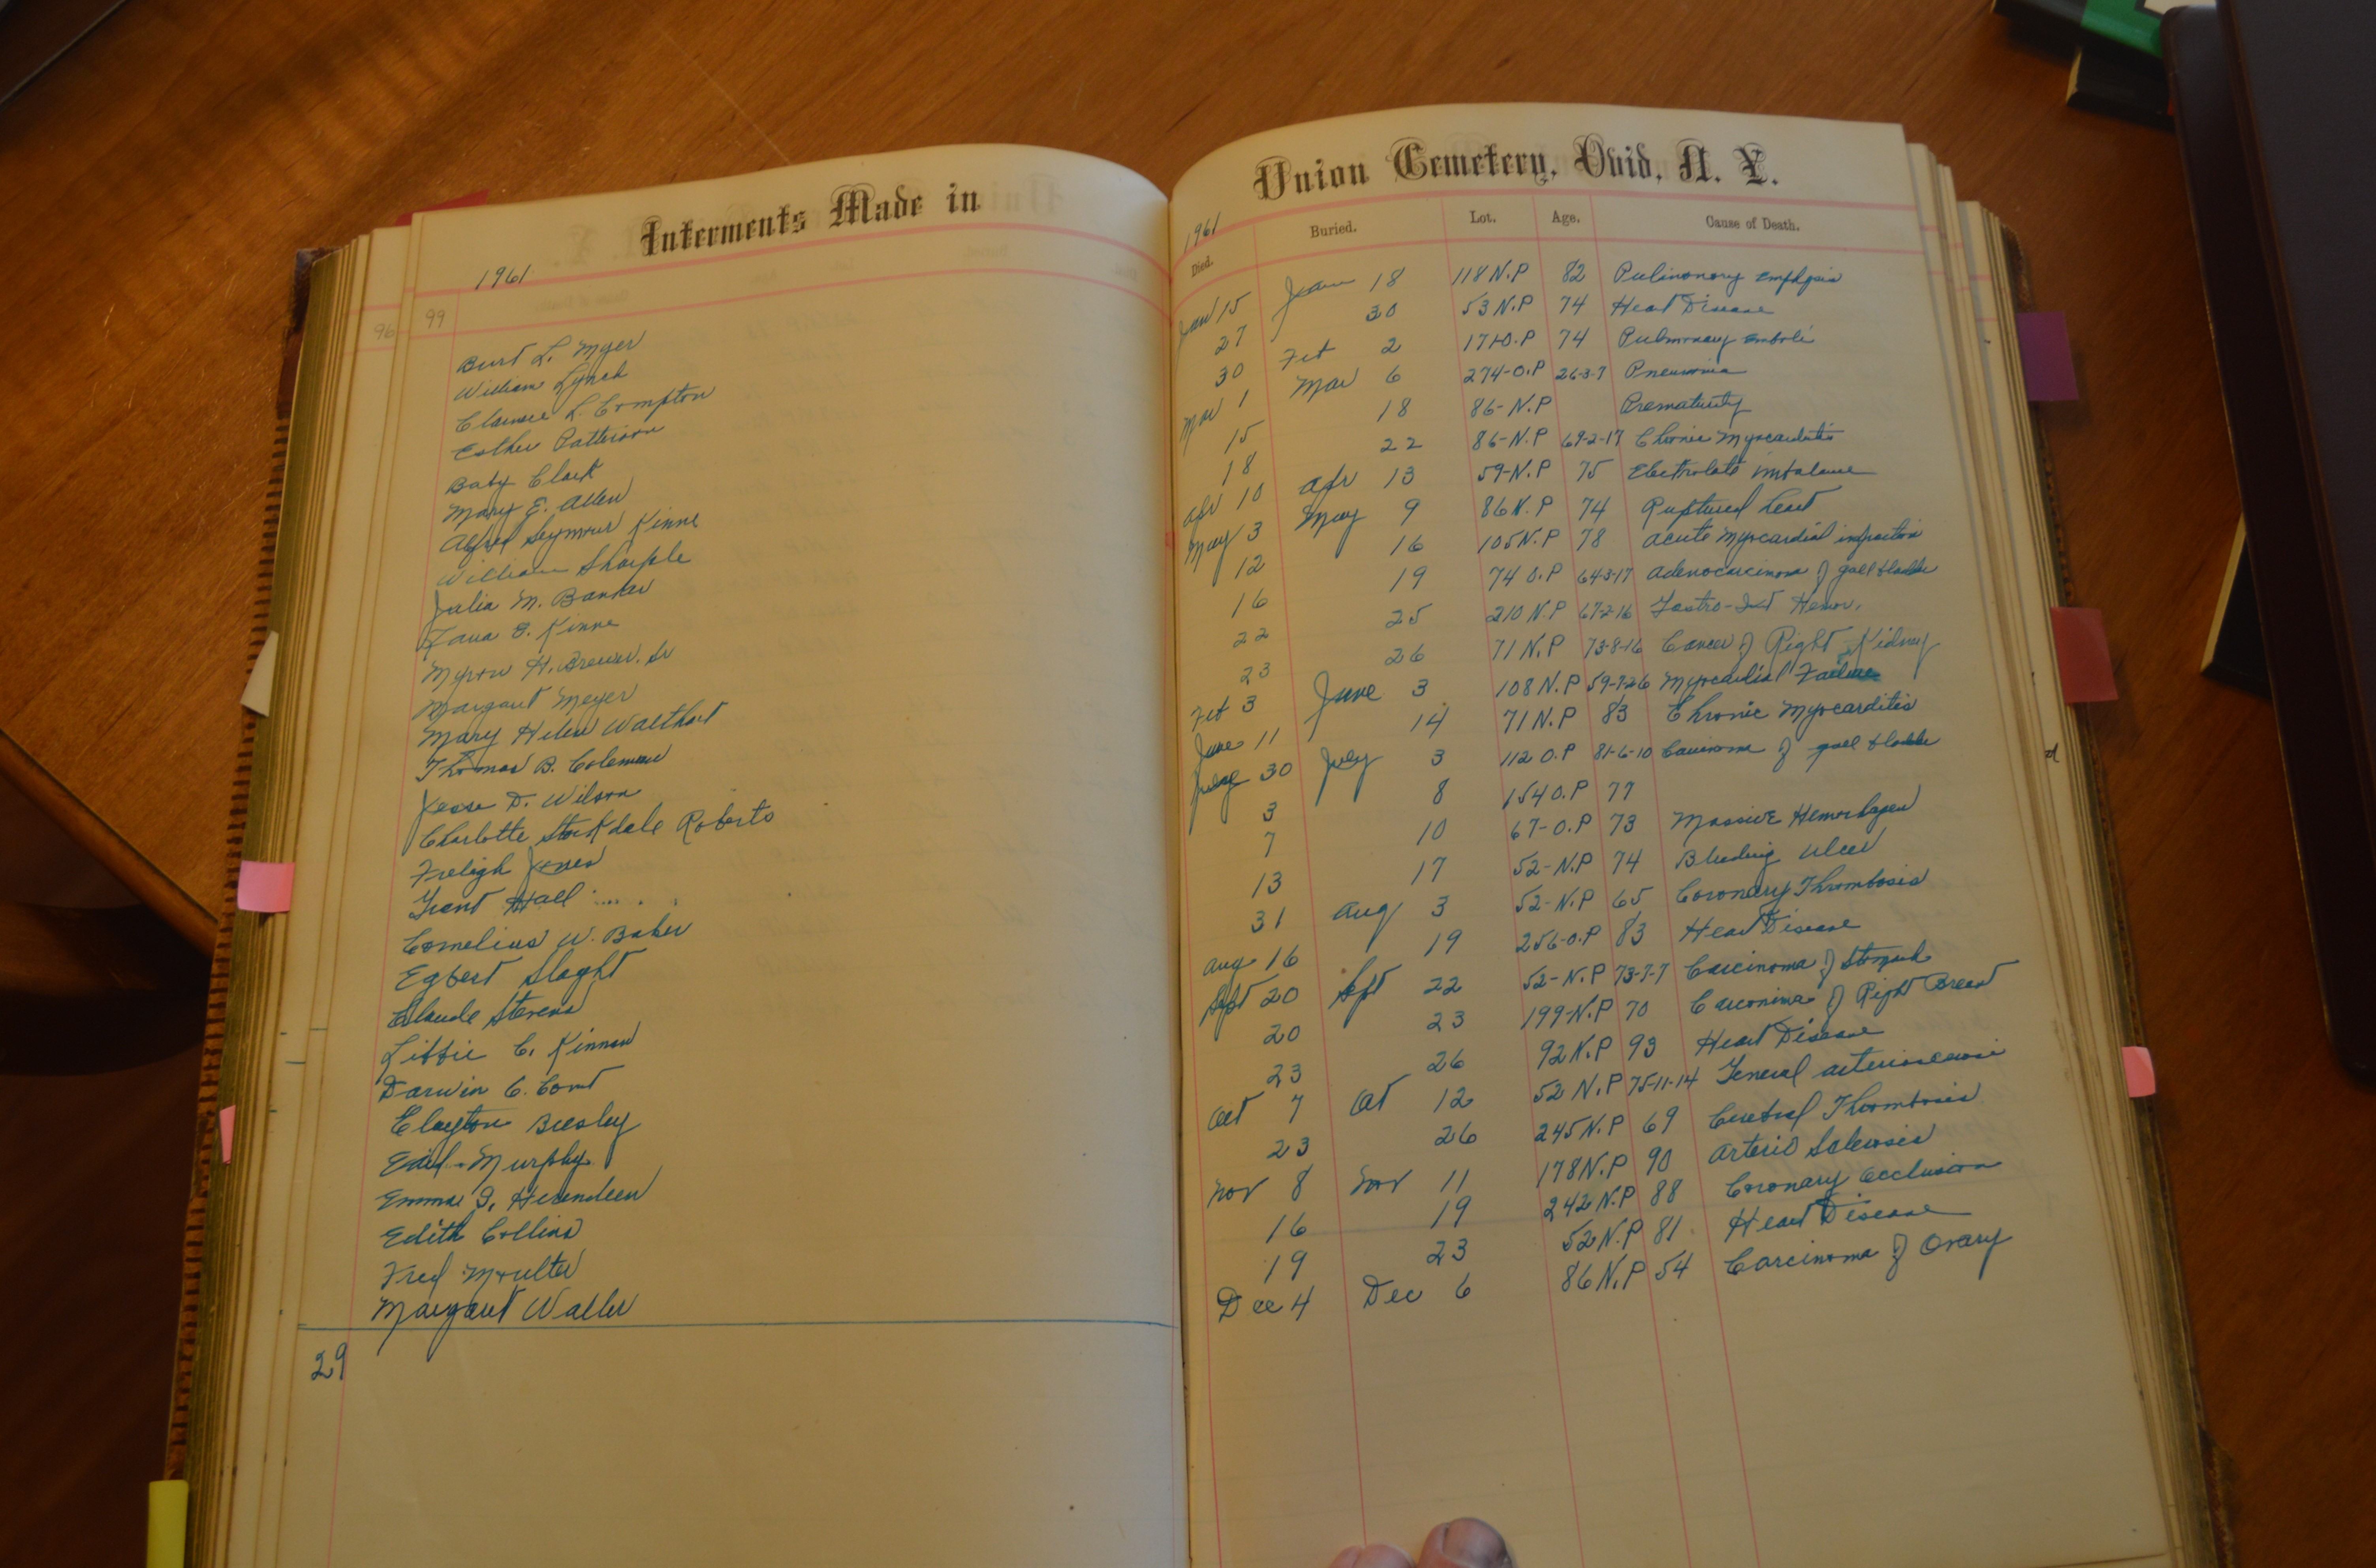 Interments Made in
1961
96
99
Burt L. Myer
William Lynch
Clarence L. Compton
Esther Patterson
Baby Clark
Mary E. Allen
Alfred Seymour Kinne
William Sharple
Julia M. Banker
Kinne
Myron H. Brewer. Sr
Margaret Meyer
Mary Helen Walthart
Thomas B. Coleman
Jesse D. Wilson
Charlotte Stockdale Roberts
Freligh Jones
Grant Hall
Cornelius W. Baker
Egbert Slaght
Claude Stevens
Libbie C. Kinnan
Darwin C. Cornt
Clayton Beesley
Earl Murphy
Emma G. Herendeen
Edith Collins
Fred Moulter
Margaret Waller
29
Union Cemetery, Ovid, N. Y.
1961
Died. Buried. Lot. Age. Cause of Death.
Jan 15 Jan 18 118 N.P 82 Pulmonary
27 30 53 N.P 74 Heart Disease
30 Feb 2 171-O.P 74 Pulmonary emboli
Mar 1 Mar 6 274-O.P 26-3-7 Pneumonia
15 18 86-N.P Prematurity
18 22 86-N.P 69-2-17 Chronic Myocarditis
Apr 10 Apr 13 59-N.P 75 Electrolate imbalance
May 3 May 9 86 N.P 74 Ruptured heart
12 16 105 N.P 78 acute Myocardial infraction
16 19 74 O.P 64-3-17 Adenocarcinoma of gall bladder
22 25 210 N.P 67-2-16 Gastro-Int Hemor.
23 26 71 N.P 73-8-16 Cancer of Right Kidney
Feb 3 June 3 108 N.P 59-7-26 Myocardial Failure
June 11 14 71 N.P 83 Chronic Myocarditis
30 July 3 112 O.P 81-6-10 Carcinoma of gall bladder
3 8 154 O.P 77
7 10 67-O.P 73 Massive Hemorhagen
13 17 52-N.P 74 Bleeding ulcer
31 Aug 3 52-N.P 65 Coronary Thrombosis
Aug 16 19 256-O.P 83 Heart Disease
Sept 20 Sept 22 52-N.P 73-7-7 Carcinoma of Stomach
20 23 199-N.P 70 Carconima of Right Breast
23 26 92 N.P 93 Heart Disease
Oct 7 Oct 12 52 N.P 75-11-14 General
23 26 245 N.P 69 Cerebral Thrombosis
Nov 8 Nov 11 178 N.P 90 Arterio Sclerosis
16 19 242 N.P 88 Coronary occlusion
19 23 52 N.P 81 Heart Disease
Dec 4 Dec 6 86 N.P 54 Carcinoma of Ovary